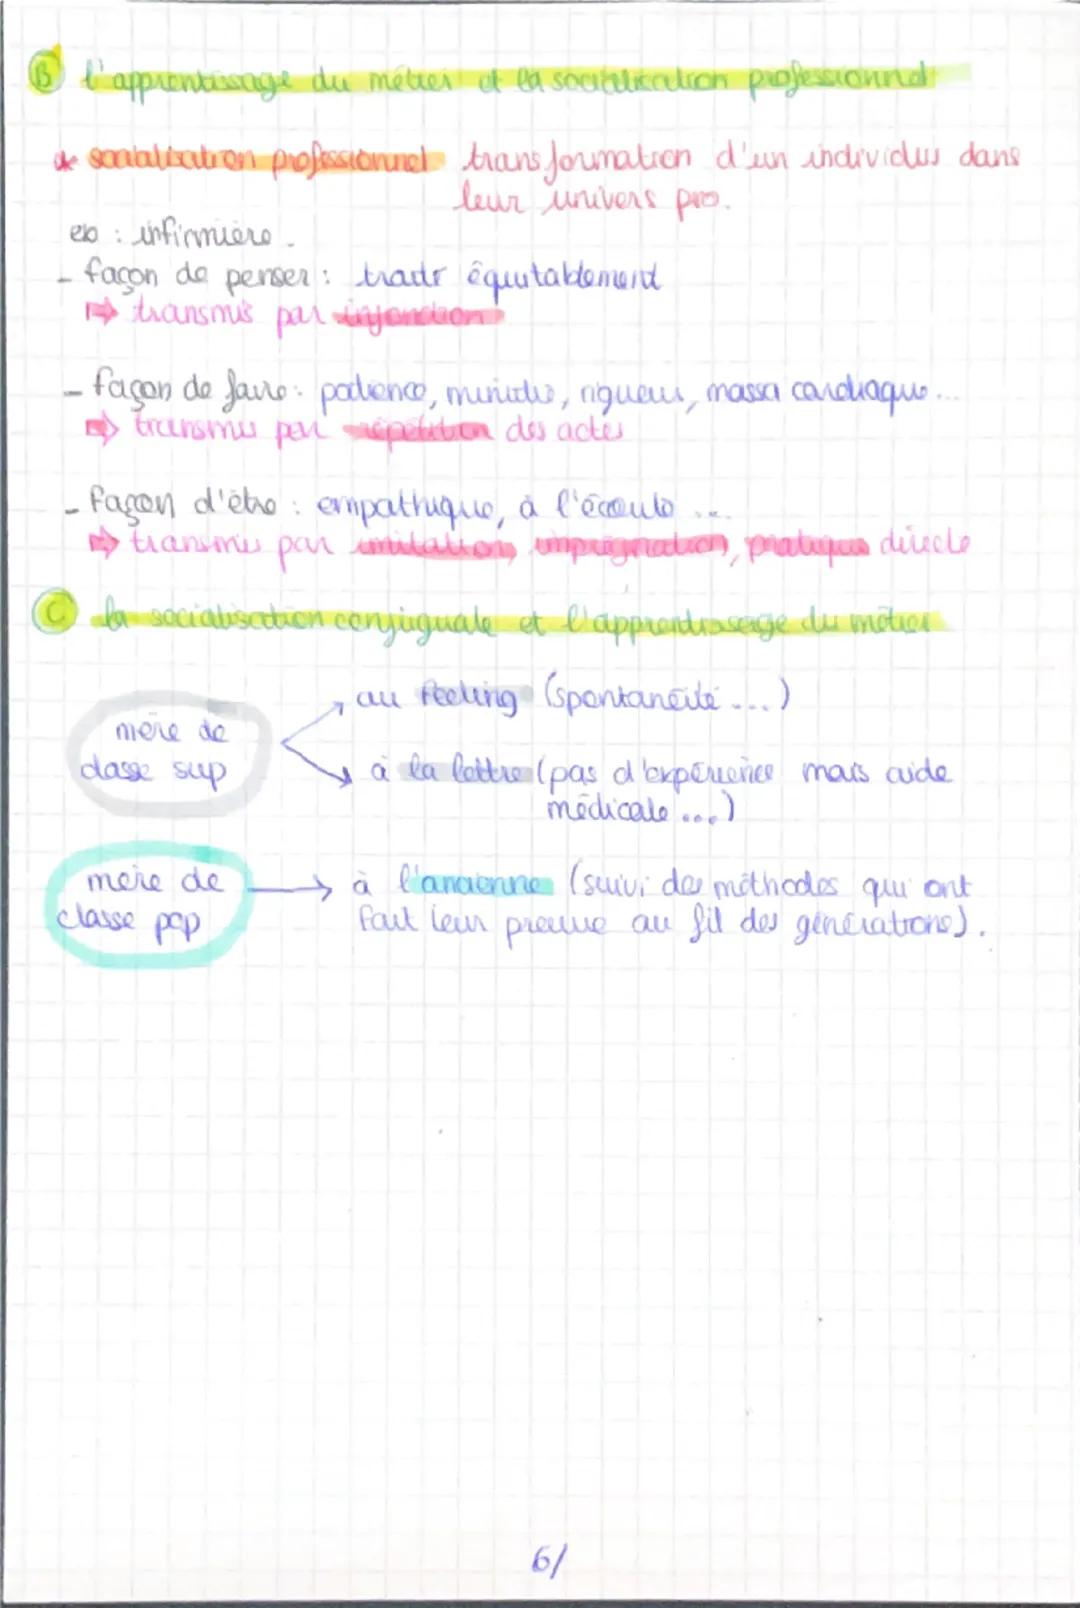 B l'apprentissage du métier et la socialisation professionnel
* socialisation professionnel transformation d'un individus dans
leur univers pro.
ex : infirmière.
- façon de penser : traitr équitablement
⇒ transmis par injonction
- façon de faire : patience, minutie, rigueur, massa cardiaque...
⇒ transmis par répétition des actes
- façon d'être : empathique, à l'écoute ...
⇒ transmis par imitation, imprégnation, pratique directe
C la socialisation conjuguale et l'apprentissage du métier
mère de
classe sup
au feeling (spontanéité ...)
à la lettre (pas d'expérience mais aide
médicale ...)
mère de
classe pop
→ à l'ancienne (suivi des méthodes qui ont
fait leur preuve au fil des générations).
6/